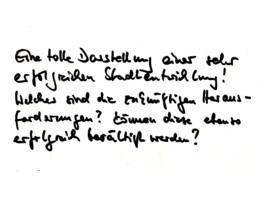 Eine tolle Darstellung einer sehr
erfolgreichen Stadtentwicklung!
Welches sind die zukünftigen Heraus-
forderungen? Können diese ebenso
erfolgreich bewältigt werden?